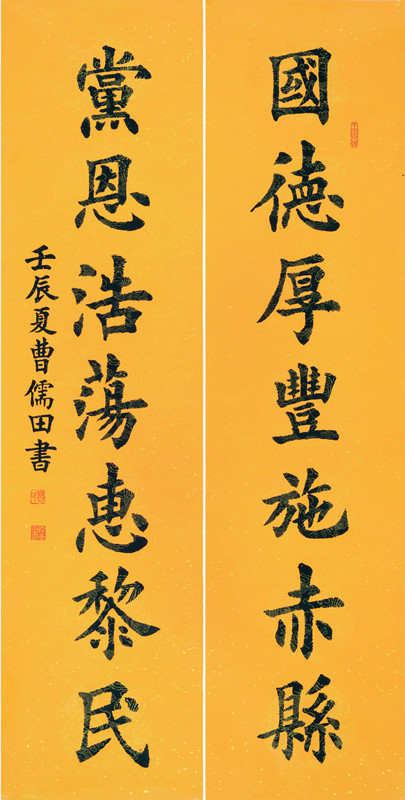 國德厚豐施赤縣
黨恩浩蕩惠黎民
壬辰夏曹儒田書